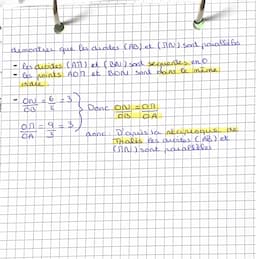 démontrer que les droites (AB) et (MN) sont parallèles
- les droites (AM) et (BN) sont sécantes en O
- les points AOM et BON sont dans le même
ordre
- ON/OB = 6/2 = 3
Donc ON/OB = OM/OA
OM/OA = 9/3 = 3
donc D'après la réciproque de
Thalès les droites (AB) et
(MN) sont parallèles